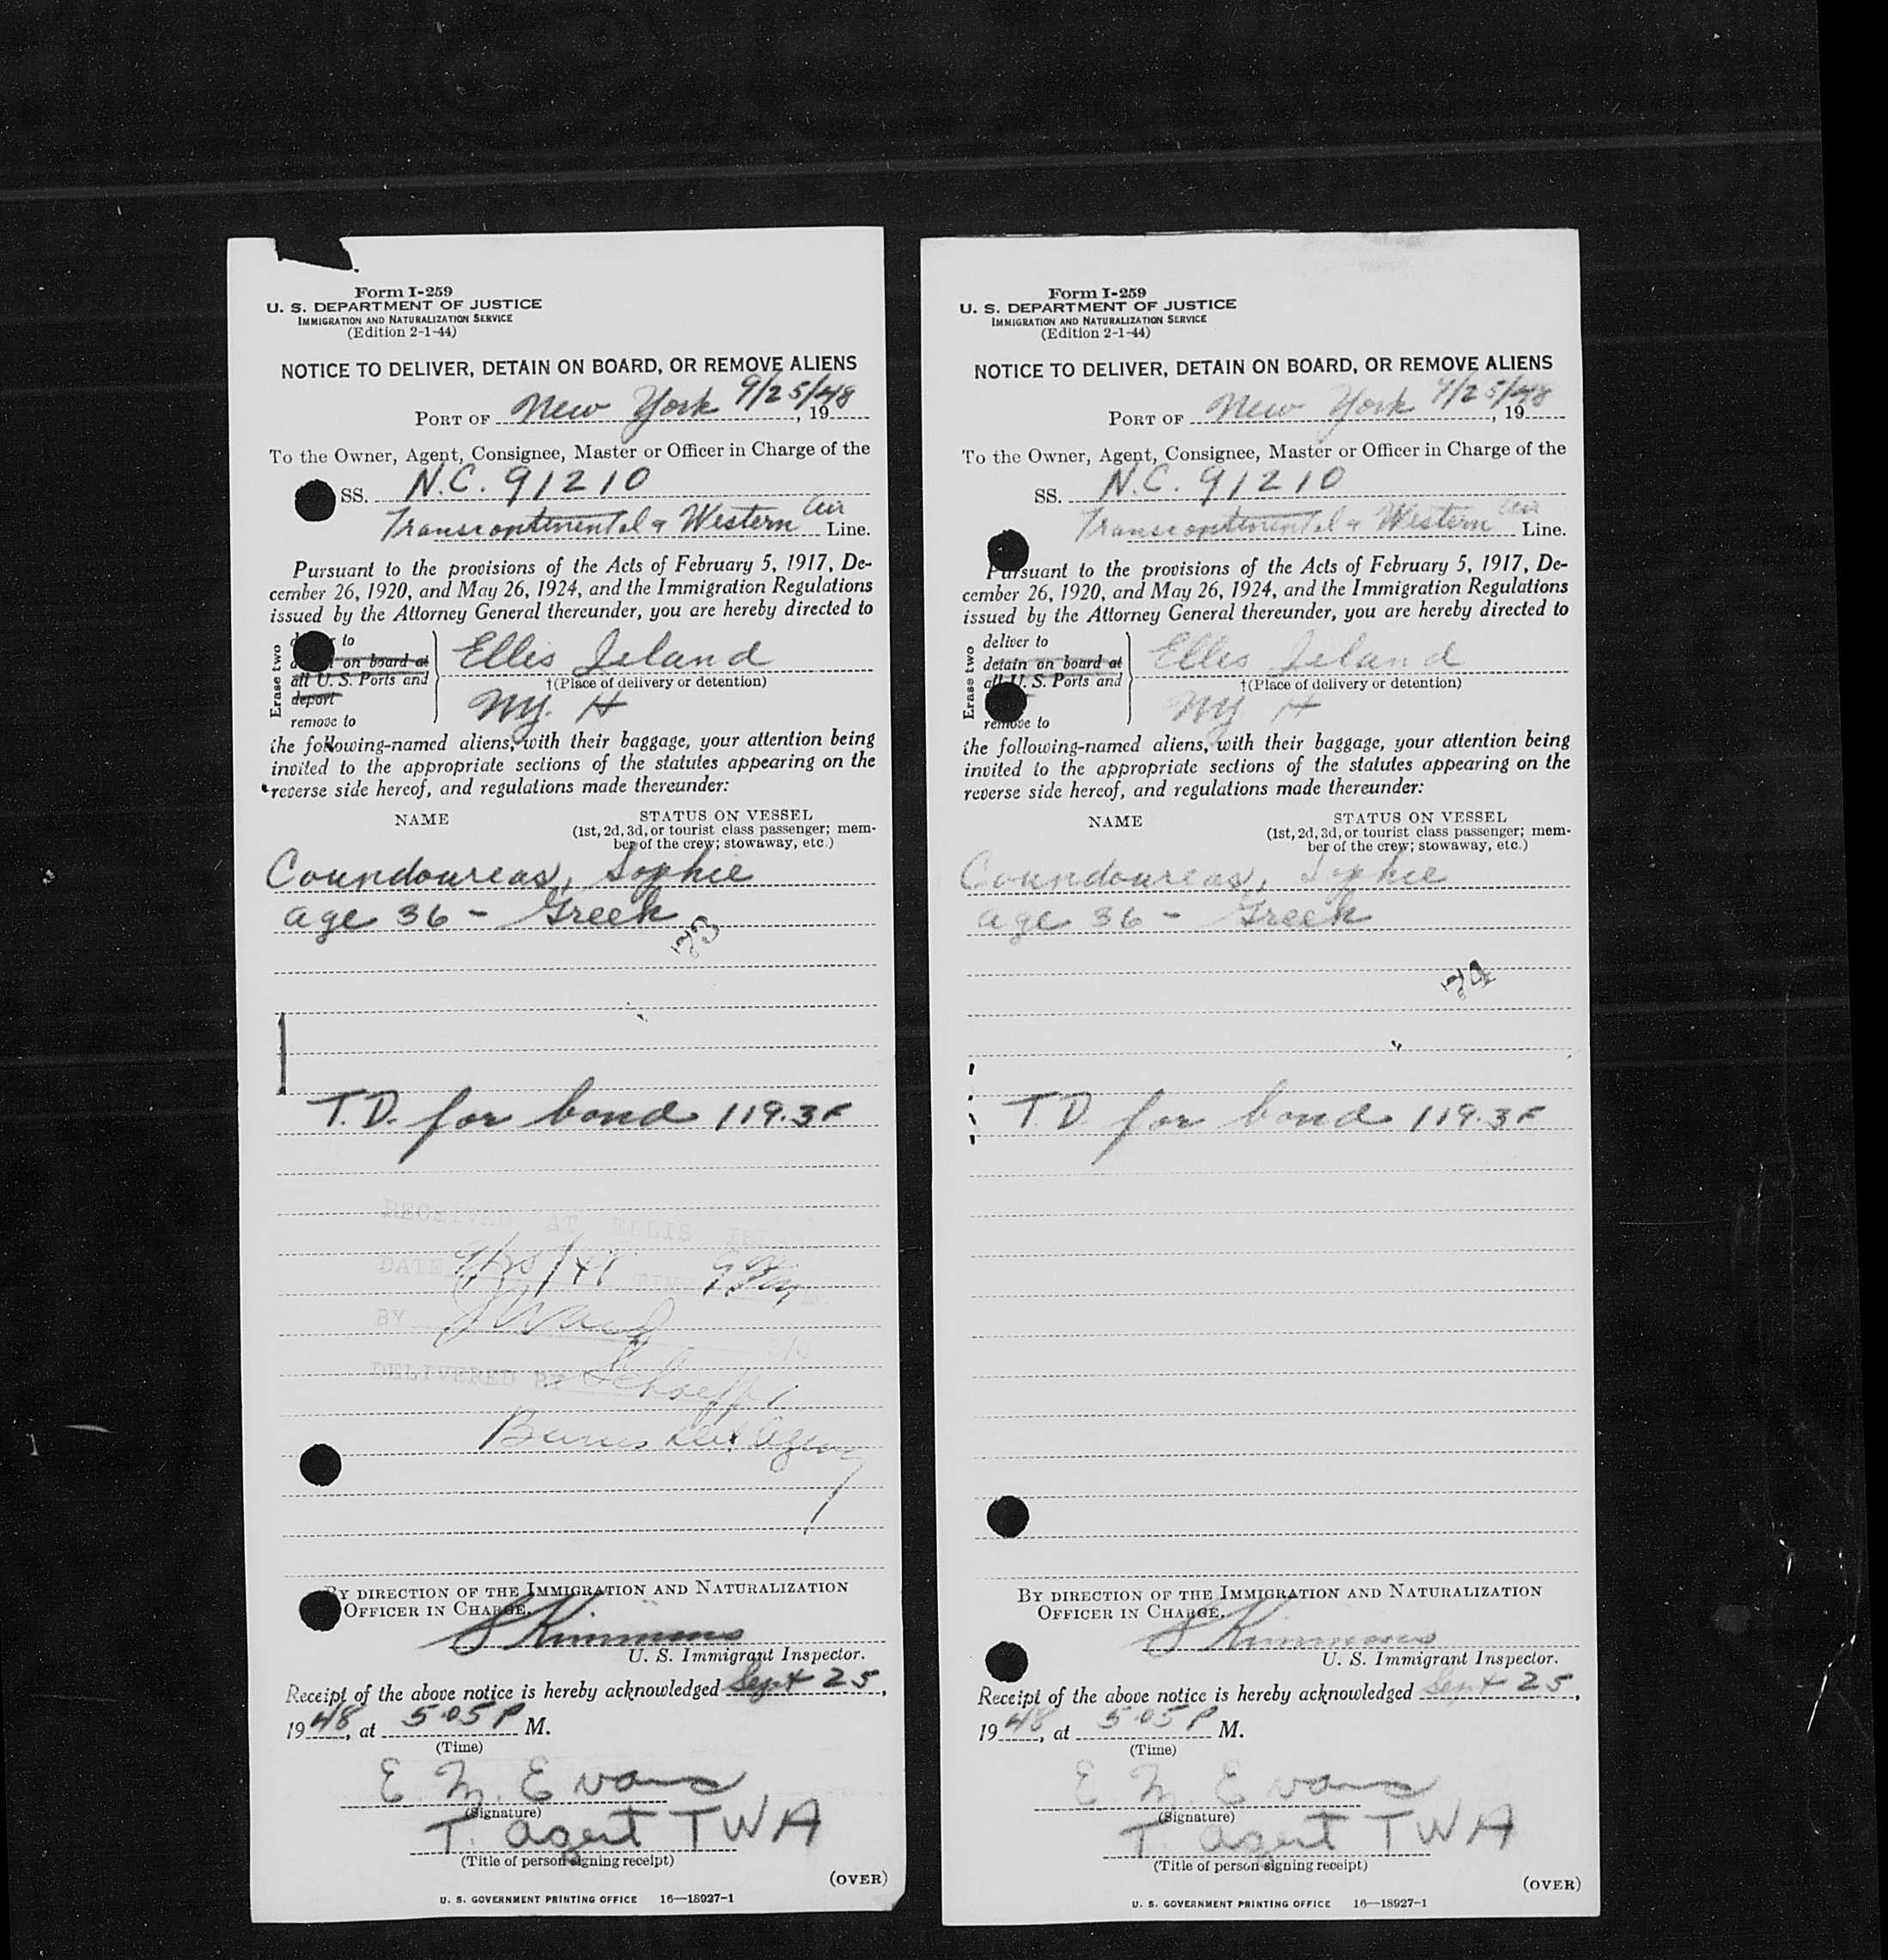 Form I-259
U. S. DEPARTMENT OF JUSTICE
IMMIGRATION AND NATURALIZATION SERVICE
(Edition 2-1-44)
NOTICE TO DELIVER, DETAIN ON BOARD, OR REMOVE ALIENS
PORT OF New York 9/25/48, 19
To the Owner, Agent, Consignee, Master or Officer in Charge of the
SS. N.C. 91210
Transcontinental & Western Air Line.
Pursuant to the provisions of the Acts of February 5, 1917, De-
cember 26, 1920, and May 26, 1924, and the Immigration Regulations
issued by the Attorney General thereunder, you are hereby directed to
Erase two
to
on board at
all U. S. Ports and
deport
remove to
Ellis Island
†(Place of delivery or detention)
NY. H
the following-named aliens, with their baggage, your attention being
invited to the appropriate sections of the statutes appearing on the
reverse side hereof, and regulations made thereunder:
NAME
STATUS ON VESSEL
(1st, 2d, 3d, or tourist class passenger; mem-
ber of the crew; stowaway, etc.)
Coundoureas, Sophie
age 36 - Greek
T.D. for bond 119.3F
RECEIVED AT ELLIS
DATE 9/25/48 TIME
BY
DELIVERED BY
Burns Det Agency
BY DIRECTION OF THE IMMIGRATION AND NATURALIZATION
OFFICER IN CHARGE.
S Kimmons
U. S. Immigrant Inspector.
Receipt of the above notice is hereby acknowledged Sept 25,
1948, at 5:05 P M.
(Time)
E. M. Evans
(Signature)
T. agent TWA
(Title of person signing receipt)
(OVER)
U. S. GOVERNMENT PRINTING OFFICE 16—18927-1
Form I-259
U. S. DEPARTMENT OF JUSTICE
IMMIGRATION AND NATURALIZATION SERVICE
(Edition 2-1-44)
NOTICE TO DELIVER, DETAIN ON BOARD, OR REMOVE ALIENS
PORT OF New York 9/25/48, 19
To the Owner, Agent, Consignee, Master or Officer in Charge of the
SS. N.C. 91210
Transcontinental & Western Air Line.
Pursuant to the provisions of the Acts of February 5, 1917, De-
cember 26, 1920, and May 26, 1924, and the Immigration Regulations
issued by the Attorney General thereunder, you are hereby directed to
Erase two
deliver to
detain on board at
all U. S. Ports and
remove to
Ellis Island
†(Place of delivery or detention)
NY H
the following-named aliens, with their baggage, your attention being
invited to the appropriate sections of the statutes appearing on the
reverse side hereof, and regulations made thereunder:
NAME
STATUS ON VESSEL
(1st, 2d, 3d, or tourist class passenger; mem-
ber of the crew; stowaway, etc.)
Coundoureas, Sophie
age 36 - Greek
T.D. for bond 119.3F
BY DIRECTION OF THE IMMIGRATION AND NATURALIZATION
OFFICER IN CHARGE.
S Kimmons
U. S. Immigrant Inspector.
Receipt of the above notice is hereby acknowledged Sept 25,
1948, at 5:05 P M.
(Time)
E. M. Evans
(Signature)
T. agent TWA
(Title of person signing receipt)
(OVER)
U. S. GOVERNMENT PRINTING OFFICE 16—18927-1